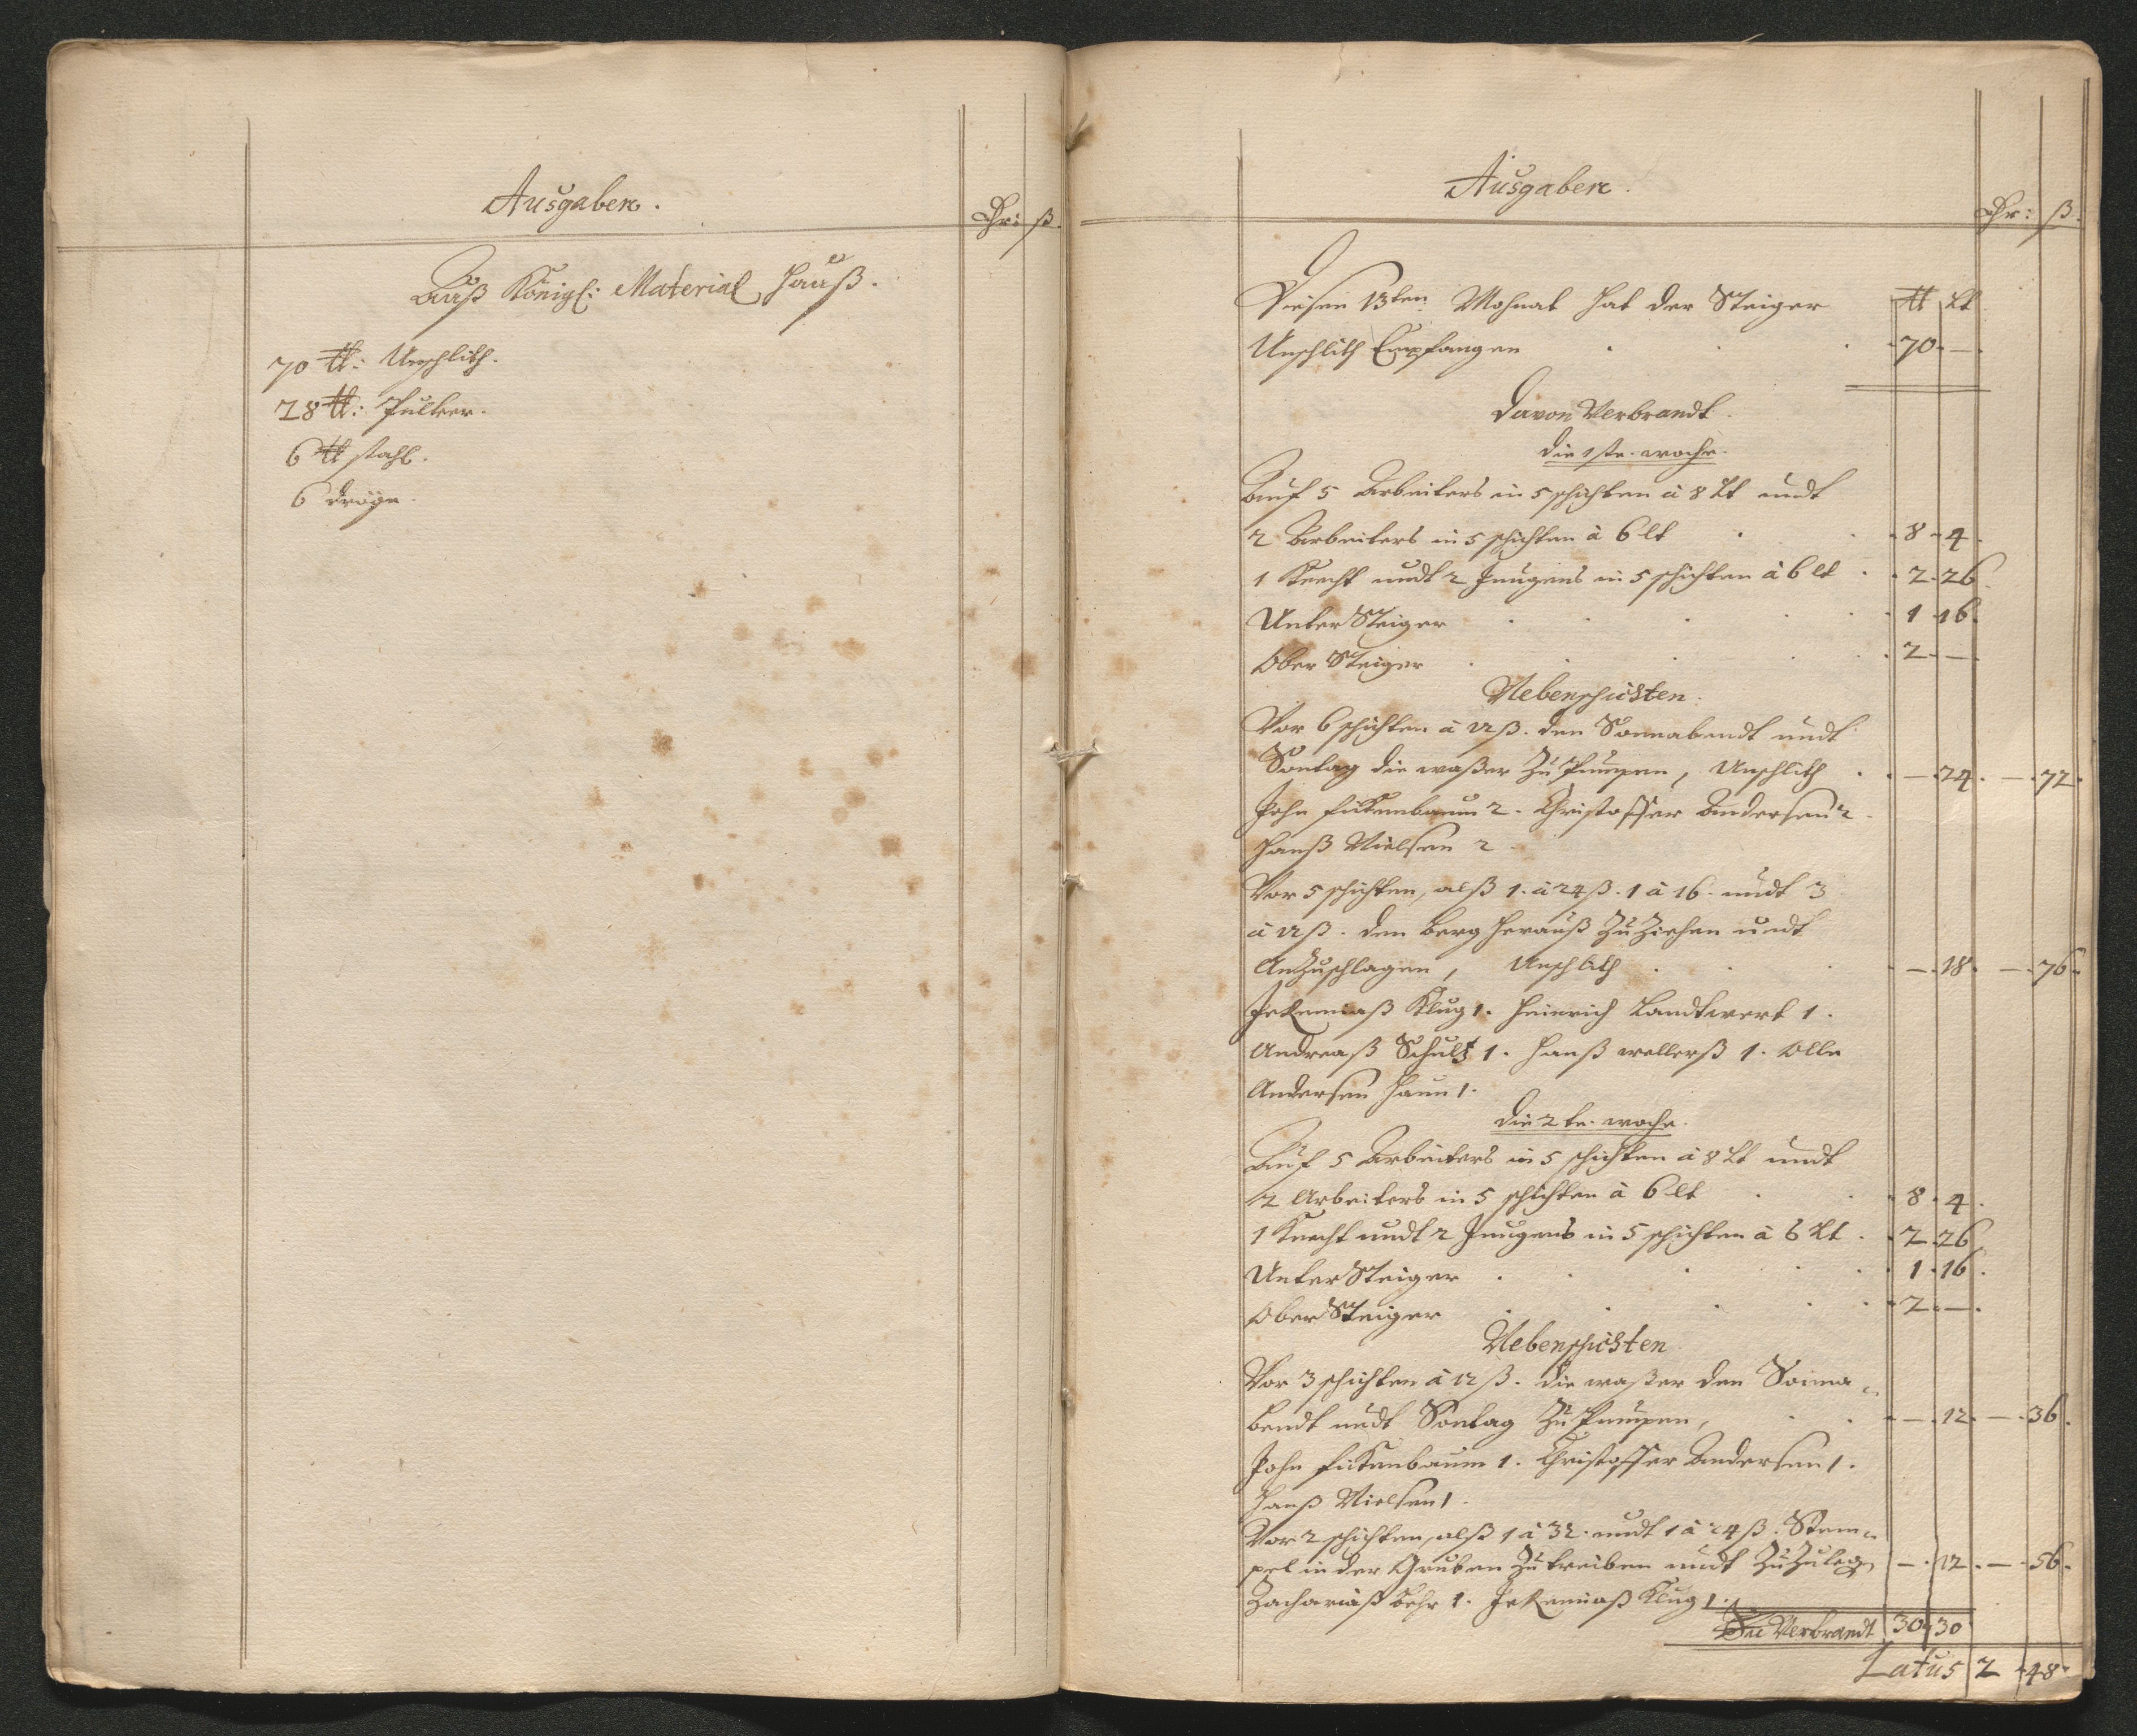 Ausgaben.
Thr: ß.
Auß Königl: Material Hauß.
70 ℔: Unschlith.
28 ℔: Pulber.
6 ℔ stahl.
6 dröge.
Ausgaben.
Thr: ß.
Diesen 13ten Mohnat hat der Steiger ℔ Lt
Unschlith Empfangen . . . 70. —.
Davon Verbrandt.
die 1ste. woche.
Auf 5 Arbeiters in 5 schichten à 8 Lt undt
2 Arbeiters in 5 schichten à 6 lt . . 8 - 4
1 Knecht undt 2 Jungens in 5 schichten à 6 lt . 2. 26
Unter Steiger . . . . . 1 16.
Ober Steiger . . . . . 2 - —.
Nebenschichten.
Vor 6 schichten à 12 ß. den Sonnabendt undt
Sontag die waßer Zu Pumpen, Unschlith . — . 24. — . 72.
John fickenbaum 2. Christoffer Andersen 2.
Hanß Nielsen 2.
Vor 5 schichten, alß 1. à 24 ß. 1 à 16. undt 3
à 12 ß. den berg herauß Zu Ziehen undt
AnZuschlagen, Unschlith . . . — . 18. — . 76.
Jeremiaß Klug 1. Heinrich Landtwert 1.
Andreaß Schultz 1. Hanß wellerß 1. Olle
Andersen Haun 1.
die 2te. woche.
Auf 5 Arbeiters in 5 schichten à 8 Lt undt
2 Arbeiters in 5 schichten à 6 lt . . 8 . 4.
1 Knecht undt 2 Jungens in 5 schichten à 6 Lt . 2. 26
Unter Steiger . . . . . 1 . 16.
Ober Steiger . . . . . 2 . —.
Nebenschichten
Vor 3 schichten à 12 ß. die waßer den Sonna-
bendt undt Sontag Zu Pumpen, . . — . 12. — . 36.
John fickenbaum 1. Christoffer Andersen 1.
Hanß Nielsen 1.
Vor 2 schichten, alß 1 à 32. undt 1 à 24 ß. Stem-
pel in der Gruben Zu treiben undt ZuZulegen — . 12. — . 56.
Zachariaß behr 1. Jeremiaß Klug 1.
Verbrandt 30 30
Latus 2 . 48.